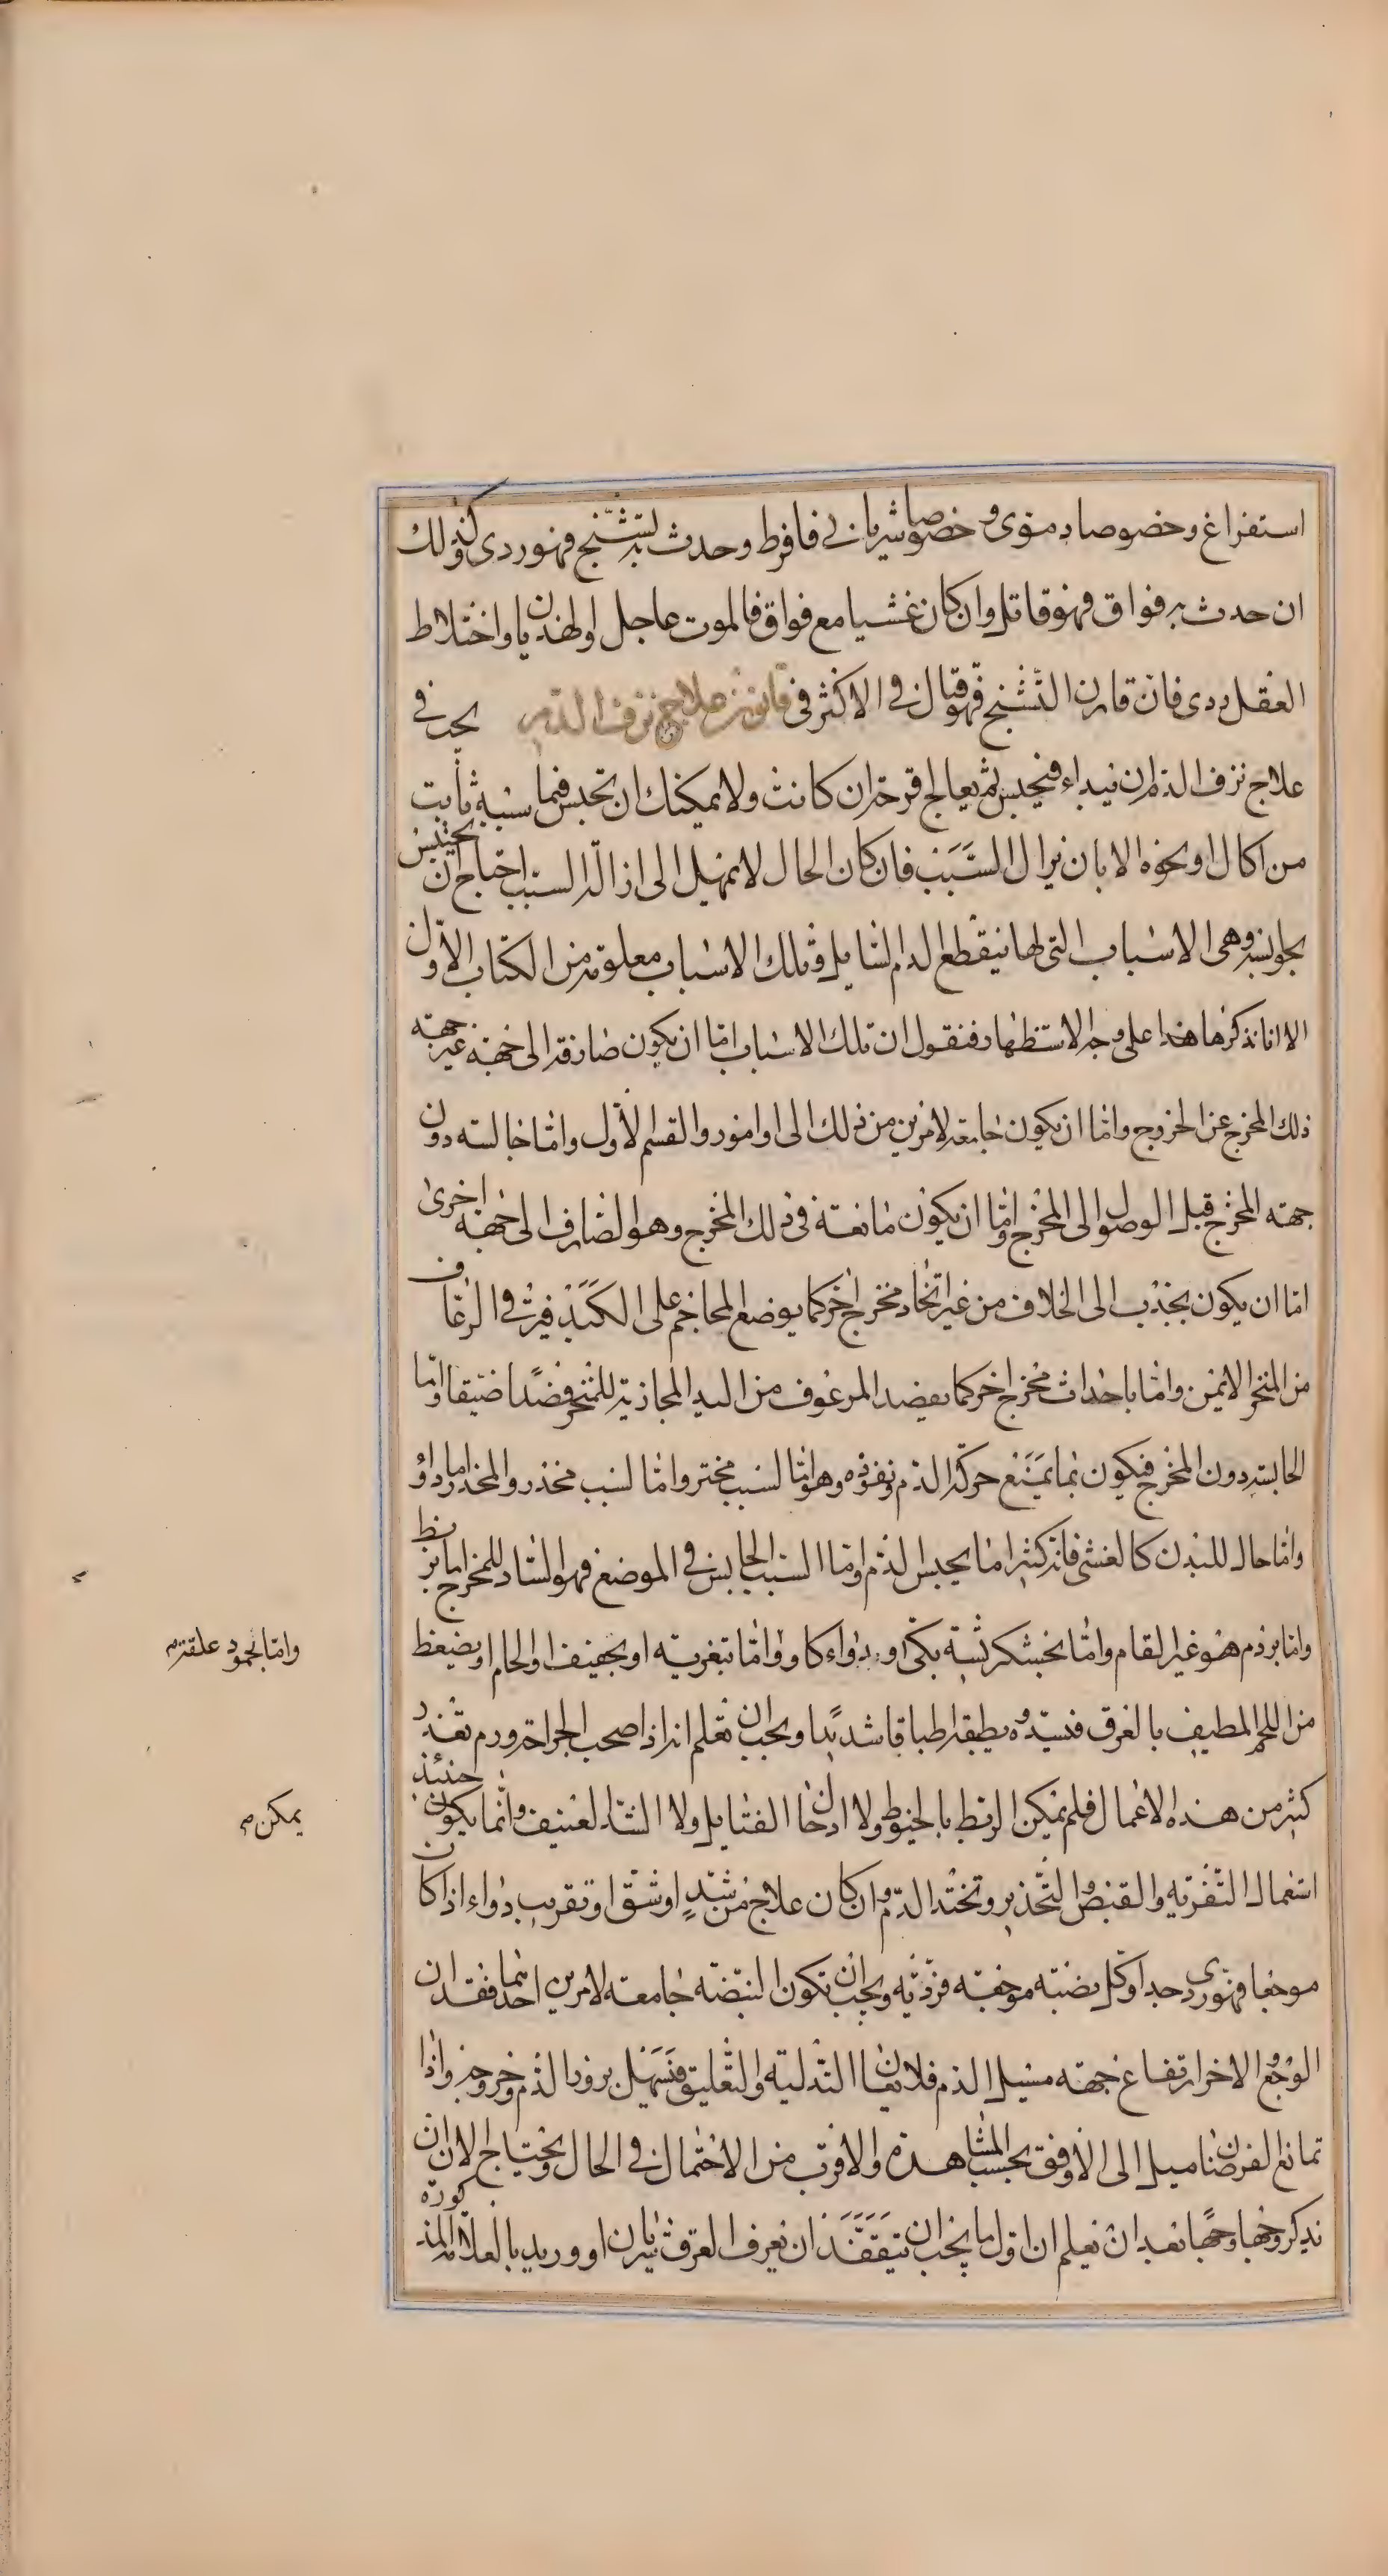 استفراغ وخصوصا دموى وخصوصا شريانى فافرط وحدث به تشنج فهو ردى وكذلك
ان حدث به فواق فهو قاتل وان كان غشيا مع فواق فالموت عاجل اولهذيان واختلاط
العقل ردى فان قارن التشنج فهو قتال فى الاكثر فى قانون علاج نزف الدم يجب فى
علاج نزف الدم ان يبداء فيحبس ثم يعالج قرحة ان كانت ولا يمكنك ان تحبس فيما سببه ثابت
من اكال او نحوه الا بان يزال السبب فان كان الحال لا يمهل الى ازالة السبب احتاج ان يحتبس
بحوابسه وهى الاسباب التى لها ينقطع الدم السايل وتلك الاسباب معلومة من الكتاب الاول
الا انا نذكرها هذا على وجه الاستظهار فنقول ان تلك الاسباب اما ان يكون صارفة الى جهة غير جهته
ذلك المخرج عن الخروج واما ان يكون جامعة لامرين من ذلك الى اوامور والقسم الاول واما حابسة دون
جهته المخرج قبل الوصول الى المخرج واما ان يكون مانعة فى ذلك المخرج وهو الصارف الى جهة اخرى
اما ان يكون بجذب الى الخلاف من غير اتخاذ مخرج اخر كما يوضع المحاجم على الكبد فيرث فى الرعاف
من المنخر الايمن واما باحداث مخرج اخر كما يفصد المرعوف من اليد المحاذية للمنخر فصدا ضيقا واما
الحابسة دون المخرج فيكون بما يمنع حركة الدم ونفوذه وهو اما لسبب مخثر واما لسبب مخدر والمخدر اما دواؤ
واما حال للبدن كالغشى فانه كثيرا ما يحبس الدم واما السبب الحابس فى الموضع فهو الساد للمخرج اما بربط
واما بردم هو غير القام واما بخشكريشة بكى او بدواء كاو واما بتغرية او تجفيف او الحام او بضغط
واما بجمود علقة
من اللحم المطيف بالعرق فيسده ويطبقه اطباقا شديدا ويجب ان تعلم انه اذا صحب الجراحة ورم تعذر
كثير من هذه الاعمال فلم يمكن الربط بالخيوط ولا ادخال الفتايل ولا الشد العنيف وانما يكون حينئذ
يمكن
استعمال التغرية والقبض والتخدير وتخثد الدم وان كان علاج من شد او شق او تقريب دواء اذا كان
موجعا فهو ردى جدا وكل نصبة موجعة فردية ويجب ان تكون النصبة جامعة لامرين احدهما فقدان
الوجع والاخر ارتفاع جهة مسيل الدم فلا يعان التدلية والتعليق فتسهل بروز الدم وخروجه واذا
تمانع الغرضان ميل الى الاوفق بحسب المشاهدة والاقرب من الاحتمال فى الحال ويحتاج الان ان
نذكر وجها وجها بعد ان تعلم ان اول ما يجب ان يتفقد ان يعرف العرق شريان او وريد بالعلامة المذكورة